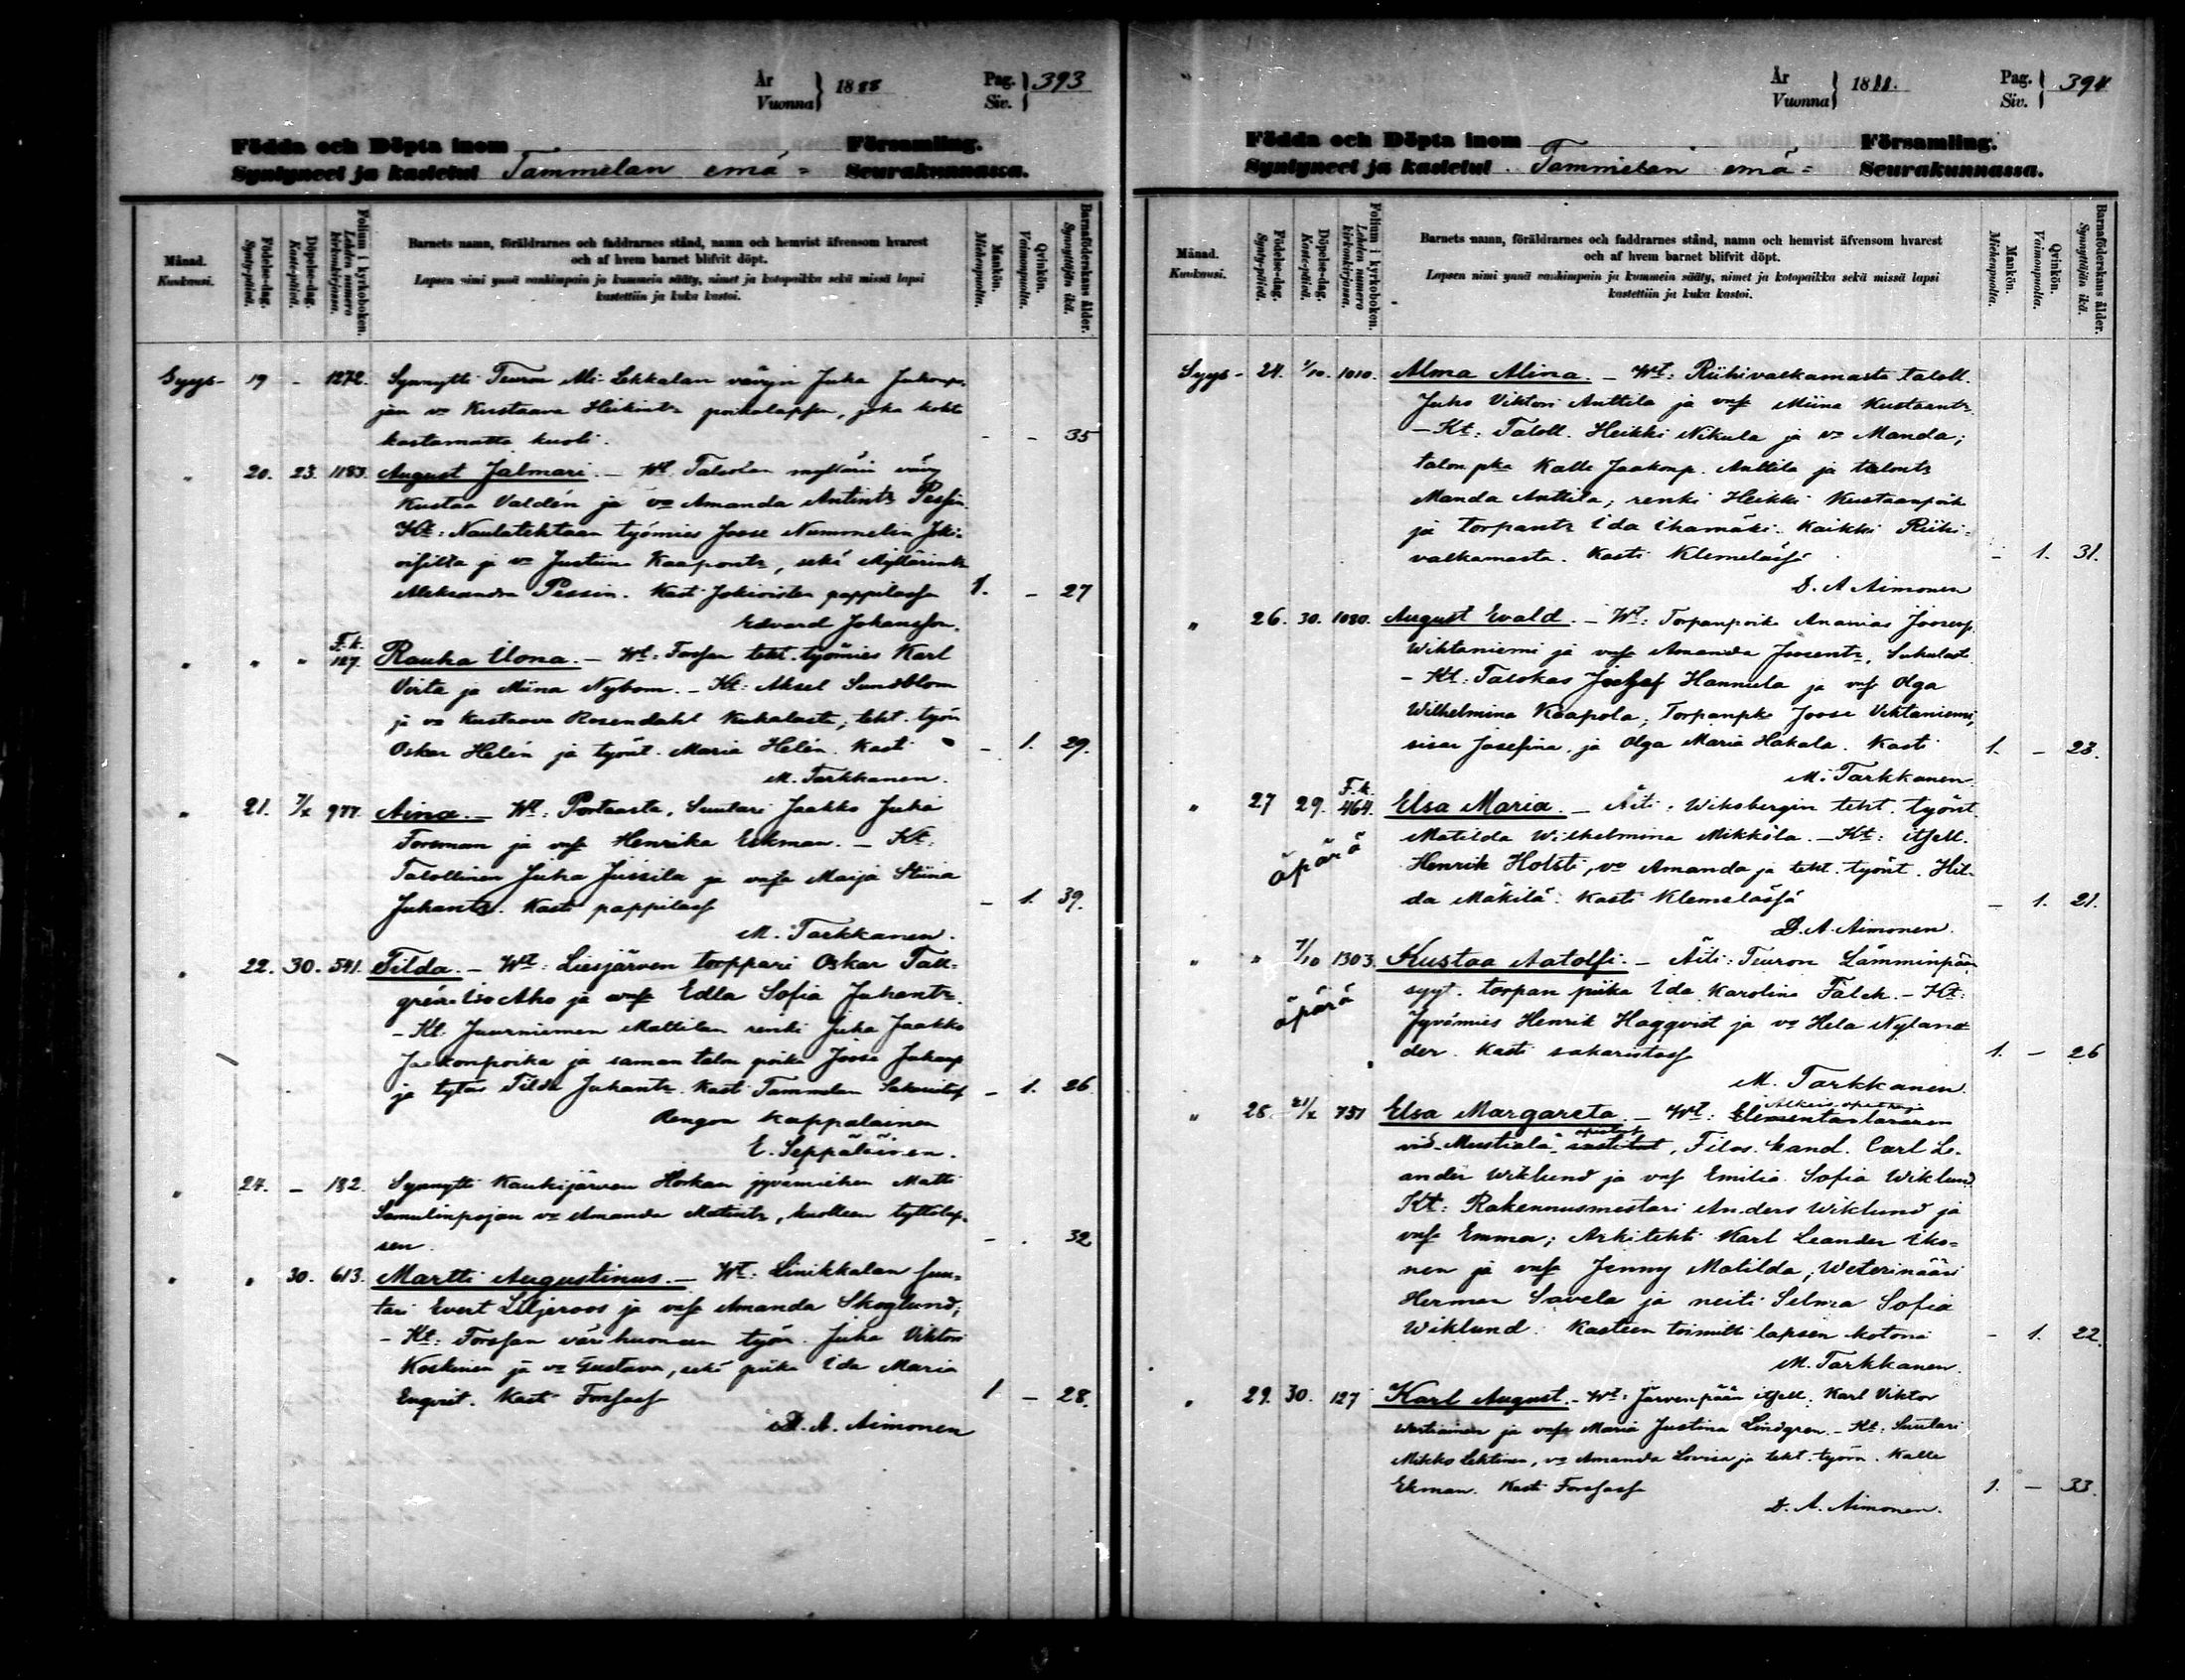 År
Vuonna } 1888 Pag.
Siv. } 393
Födda och Döpta inom Församling.
Syntyneet ja kastetut Tammelan emä- Seurakunnassa.
Månad.
Kuukausi.
Födelse-dag.
Synty-päivä.
Döpelse-dag.
Kaste-päivä.
Folium i kyrkoboken.
Lehden numero
kirkonkirjassa.
Barnets namn, föräldrarnes och faddrarnes stånd, namn och hemvist äfvensom hvarest
och af hvem barnet blifvit döpt.
Lapsen nimi ynnä vanhimpain ja kummein sääty, nimet ja kotopaikka sekä missä lapsi
kastettiin ja kuka kastoi.
Mankön.
Miehenpuolta.
Qvinkön.
Vaimonpuolta.
Barnaföderskans ålder.
Synnyttäjän ikä.
Syys- 19 - 1272. Synnytti Teuron Ali-Lekkalan vävyn Juha Juhonpo-
jan vo Kustaava Heikintr poikalapsen, joka koht
kastamatta kuoli. - - 35
" 20. 23. 1183. August Jalmari. - Wt. Talsolan myllärin vävy
Kustaa Valdén ja vo Amanda Antintr Pessin.
Kt: Naulatehtaan työmies Joose Nummelin Joki-
oisilta ja vo Justiina Kaapontr, sekä Myllärintr
Aleksandra Pessin. Kast. Jokioisten pappilassa 1. - 27
Edvard Johansson.
" " " F.k. 127. Rauha Ilona. - Wt: Forssan teht. työmies Karl
Virta ja Miina Nybom. - Kt: Aksel Sundblom
ja vo Kustaava Rosendahl Kuhalasta; teht. työn
Oskar Helén ja työnt. Maria Helén. Kasti - 1. 29.
M. Tarkkanen.
" 21. 7/X 977. Aina. - Wt: Portaasta, Suutari Jaakko Juha
Forsman ja vsa Henrika Eekman. - Kt:
Talollinen Juha Jussila ja vsa Maija Stiina
Juhantr. Kasti pappilass - 1. 39.
M. Tarkkanen.
" 22. 30. 541. Tilda. - Wt: Liesjärven torppari Oskar Tall-
grén Iso Aho ja vsa Edla Sofia Juhantr.
- Kt. Juurniemen Mattilan renki Juha Jaakko
Jaakonpoika ja saman talon poika Joose Juhanp
ja tytär Tilda Juhantr. Kast Tammelan Sakaristos - 1. 26
Rengon kappalainen
E. Seppäläinen.
" 24. - 182. Synnytti Kaukijärven Horkan jyvämiehen Matti
Samulinpojan vo Amanda Matintr, kuolleen tyttölap-
sen. - . 32
" " 30. 613. Martti Augustinus. - Wt: Linikkalan suu-
tari Evert Liljeroos ja vsa Amanda Skoglund;
- Kt: Forssan värihuoneen työn. Juha Viktor
Koskinen ja vo Gustava, sekä piika Ida Maria
Enqvist. Kast Forssass 1 - 28.
D. A. Aimonen
År
Vuonna } 1888. Pag.
Siv. } 394
Födda och Döpta inom Församling.
Syntyneet ja kastetut Tammelan emä- Seurakunnassa.
Månad.
Kuukausi.
Födelse-dag.
Synty-päivä.
Döpelse-dag.
Kaste-päivä.
Folium i kyrkoboken.
Lehden numero
kirkonkirjassa.
Barnets namn, föräldrarnes och faddrarnes stånd, namn och hemvist äfvensom hvarest
och af hvem barnet blifvit döpt.
Lapsen nimi ynnä vanhimpain ja kummein sääty, nimet ja kotopaikka sekä missä lapsi
kastettiin ja kuka kastoi.
Mankön.
Miehenpuolta.
Qvinkön.
Vaimonpuolta.
Barnaföderskans ålder.
Synnyttäjän ikä.
Syys- 24. 1/10. 1010. Alma Alina. - Wt: Riihivalkamasta taloll.
Juho Viktori Anttila ja vsa Miina Kustaantr.
- Kt: Taloll. Heikki Nikula ja vo Manda;
talon pka Kalle Jaakonp. Anttila ja talontr
Manda Anttila; renki Heikki Kustaanpoik
ja torpantr Ida Ihamäki. Kaikki Riihi-
valkamasta. Kasti Klemelässä - 1. 31.
D. A Aimonen
" 26. 30. 1080. August Evald. - Wt: Torpanpoika Ananias Joosenp.
Wihtaniemi ja vsa Amanda Joosentr, Sukulast.
- Kt: Talokas Josef Hannula ja vsa Olga
Wilhelmina Kaapola; Torpanpka Joose Vihtaniemi,
sisar Josefina, ja Olga Maria Hakala. Kasti 1. - 23.
M. Tarkkanen.
" 27 29. F.k. 464. Elsa Maria. - Äiti: Wiksbergin teht. työnt.
Matilda Wilhelmina Mikkola. - Kt: itsell.
äpärä Henrik Holsti, vo Amanda ja teht. työnt. Hil-
da Mäkilä. Kasti Klemelässä - 1. 21.
D. A. Aimonen.
" " 7/10 1303. Kustaa Aatolfi. - Äiti: Teuron Lamminpään
äpärä syyt. torpan piika Ida Karolina Falck. - Kt:
Jyvämies Henrik Hagqvist ja vo Hela Nylan-
der. Kasti sakaristoss 1. - 26
M. Tarkkanen.
" 28. 21/X 751 Elsa Margareta. - Wt: Elementarläraren
vid Mustiala institut, Filos. kand. Carl Le-
ander Wiklund ja vsa Emilia Sofia Wiklund
Kt: Rakennusmestari Anders Wiklund ja
vsa Emma; Arkitehti Karl Leander Iko-
nen ja vsa Jenny Matilda; Weterinääri
Herman Savela ja neiti Selma Sofia
Wiklund. Kasteen toimitti lapsen kotona - 1. 22
M. Tarkkanen.
" 29. 30. 127 Karl August. - Wt: Järvenpään itsell. Karl Viktor
Wartiainen ja vsa Maria Justina Lindgren. - Kt: Suutari
Mikko Lehtinen, vo Amanda Lovisa ja teht. työm. Kalle
Ekman. Kasti Forssass 1. - 33.
D. A. Aimonen.